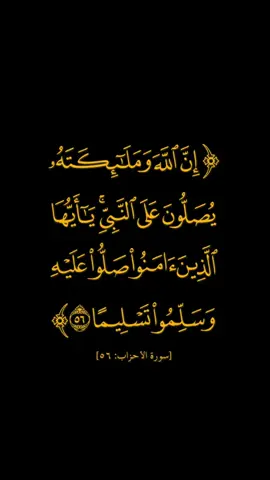 ﴿ إِنَّ ٱللَّهَ وَمَلَـٰٓئِكَتَهُۥ
يُصَلُّونَ عَلَى ٱلنَّبِيِّۚ يَـٰٓأَيُّهَا
ٱلَّذِينَ ءَامَنُوا۟ صَلُّوا۟ عَلَيْهِ
وَسَلِّمُوا۟ تَسْلِيمًا ٥٦ ﴾
[سورة الأحزاب: ٥٦]